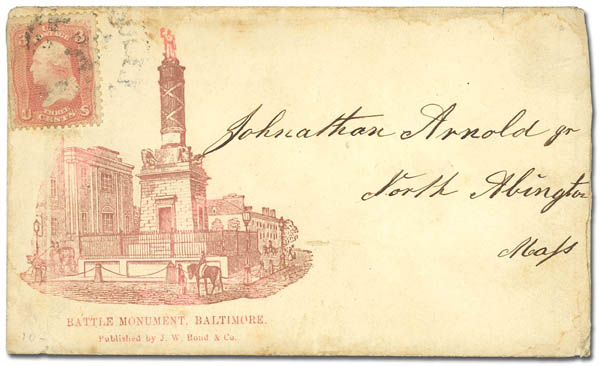 U.S. POSTAGE
3 3
U S
THREE
CENTS
Johnathan Arnold Jr
North Abington
Mass
BATTLE MONUMENT, BALTIMORE.
Published by J. W. Bond & Co.
10-